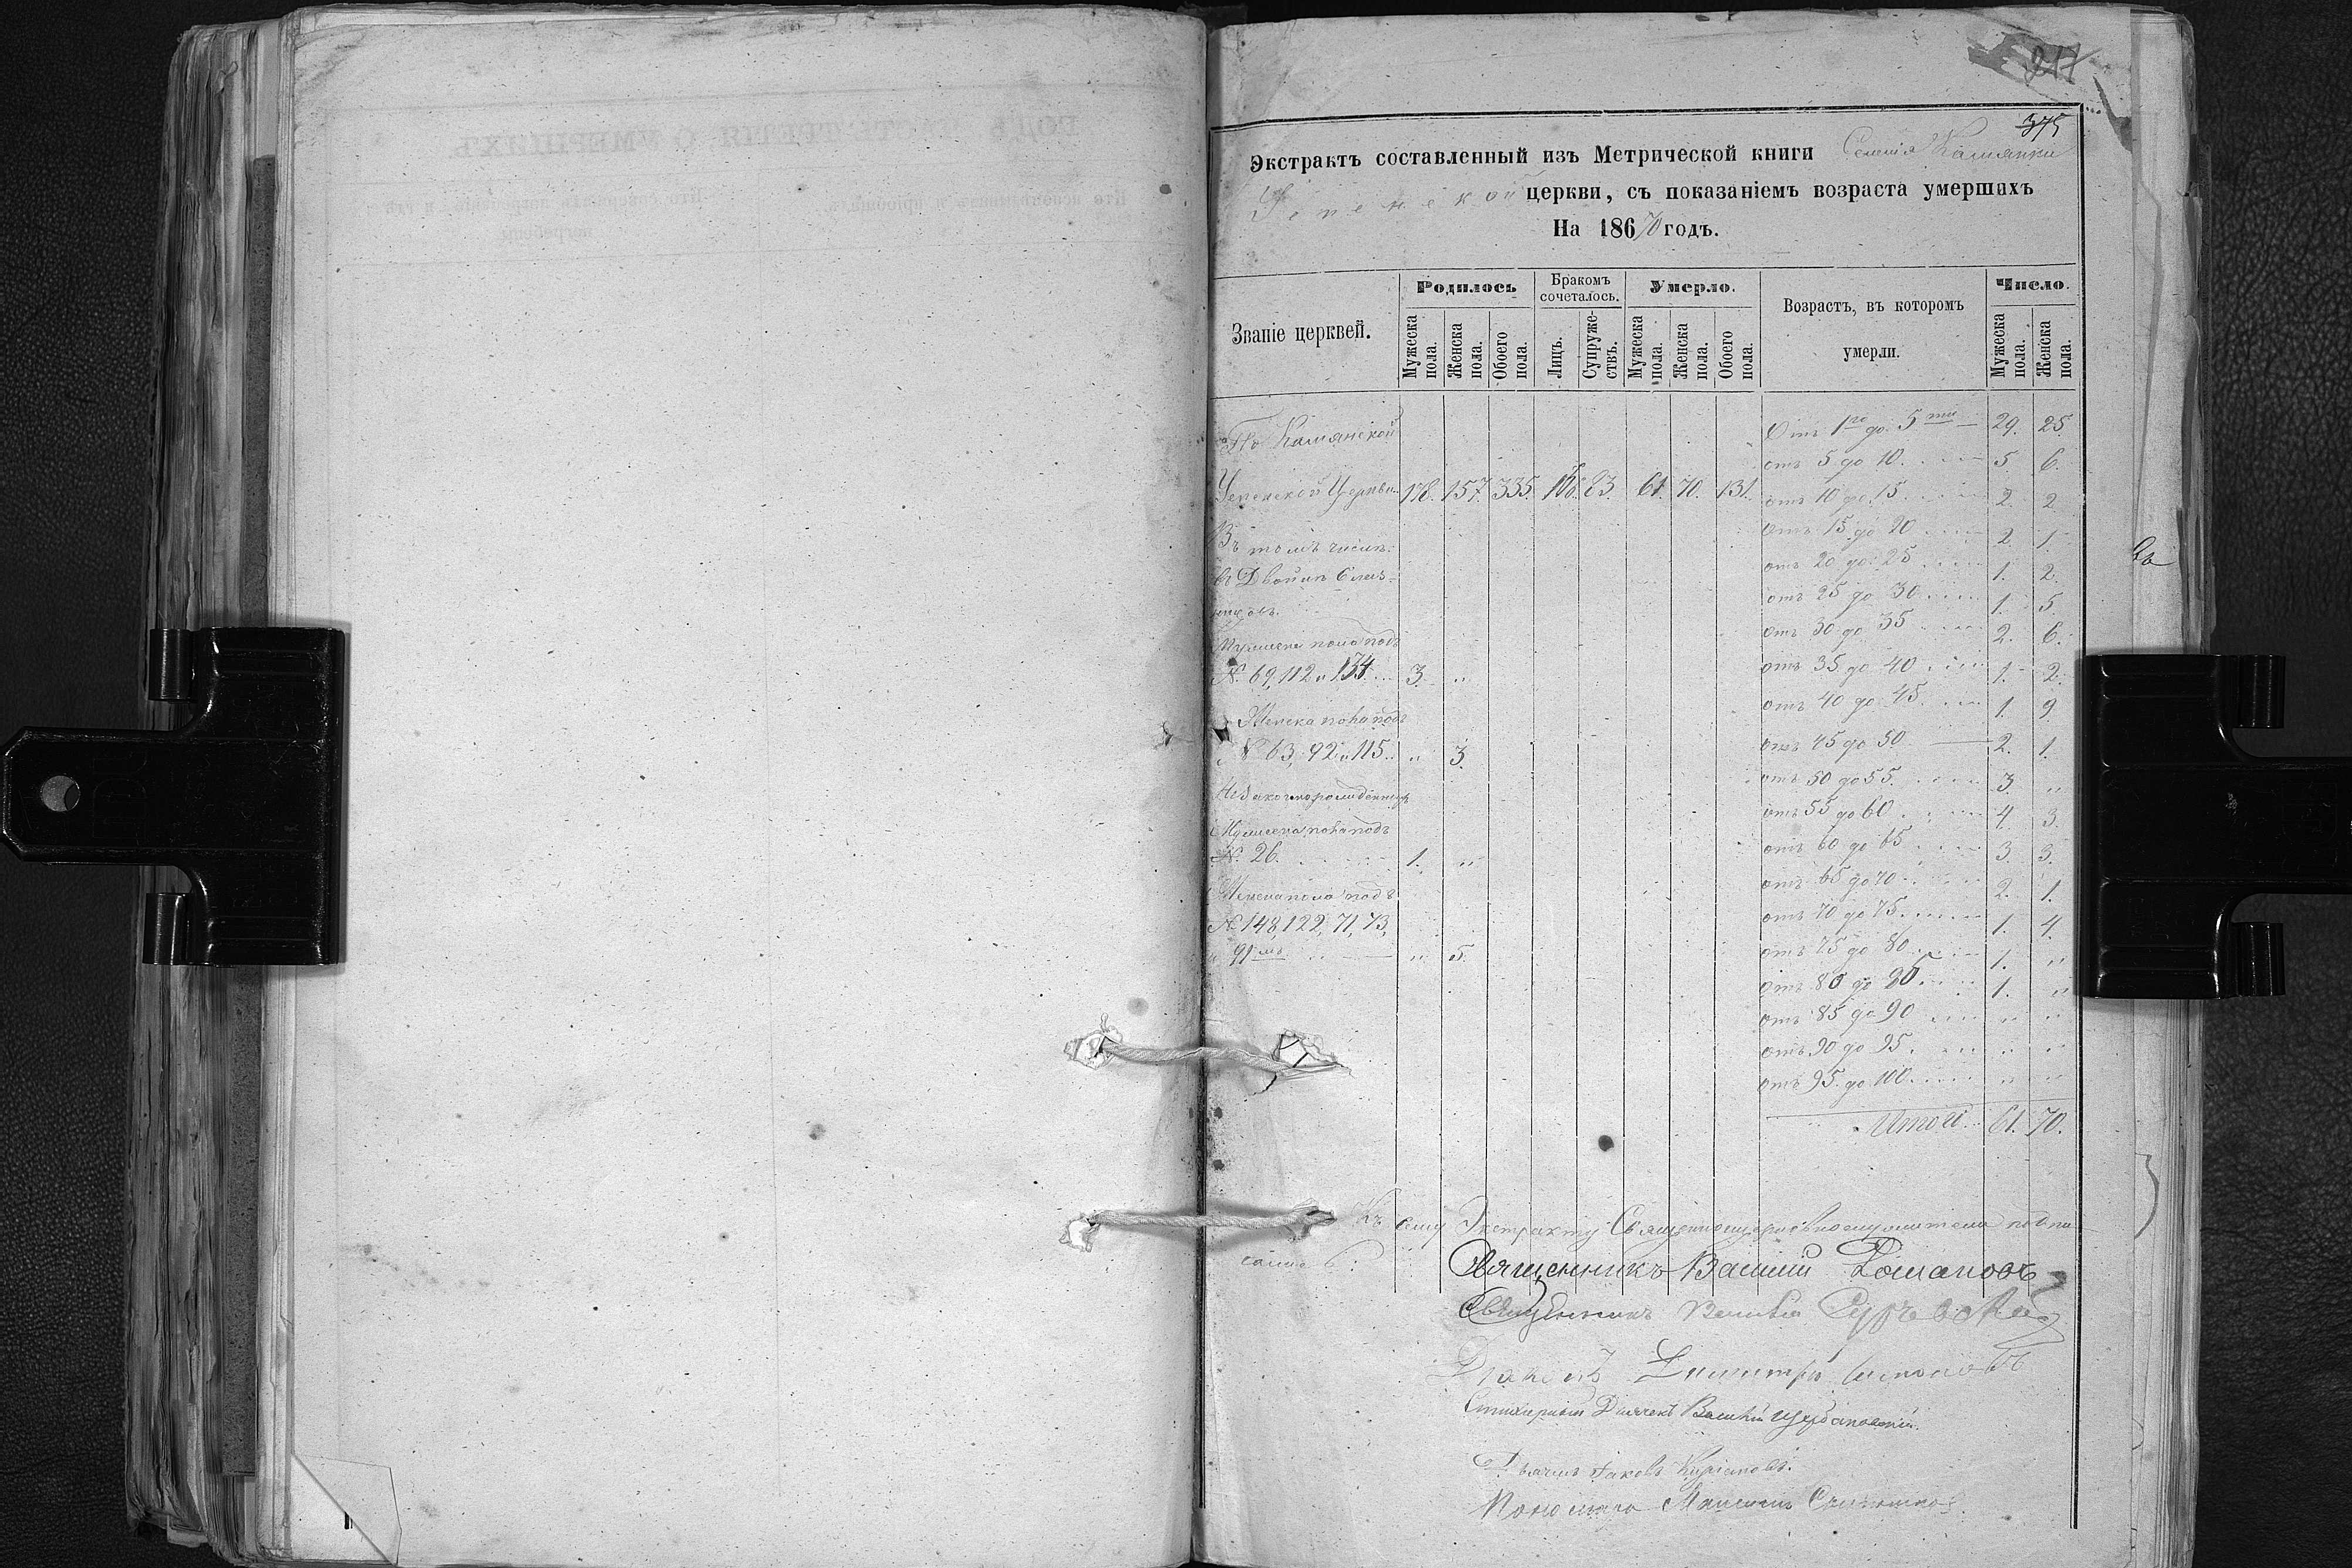 217
375
Экстрактъ составленный изъ Метрической книги Селенія Камянки
Успенской церкви, съ показаніемъ возраста умершихъ
На 18670 годъ.
Званіе церквей.
Родилось
Бракомъ сочеталось.
Умерло.
Возрастъ, въ которомъ умерли.
Число.
Мужеска пола.
Женска пола.
Обоего пола.
Лицъ.
Супружествъ.
Мужеска пола.
Женска пола.
Обоего пола.
Мужеска пола.
Женска пола.
По Камянской
Успенской Церкви 178. 157. 335. 166. 83. 61. 70. 131.
Въ томъ числѣ:
Мужеска пола подъ
№. 69, 112 и 134. 3. "
Женска пола подъ
№ 63, 92 и 115. " 3.
Незаконнорожденныхъ
Мужеска пола подъ
№. 26. 1. "
Женска пола подъ
№ 148, 122, 71, 73,
и 91мъ " 5.
Отъ 1го до 5ти 29. 25.
отъ 5 до 10. 5. 6.
отъ 10 до 15 2. 2
отъ 15 до 20 2. 1.
отъ 20 до 25 1. 2.
отъ 25 до 30 1. 5.
отъ 30 до 35 2. 6.
отъ 35 до 40 1. 2.
отъ 40 до 45. 1. 9.
отъ 45 до 50 2. 1.
отъ 50 до 55. 3. "
отъ 55 до 60 4. 3.
отъ 60 до 65 3. 3.
отъ 65 до 70 2. 1.
отъ 70 до 75. 1. 4.
отъ 75 до 80 1. "
отъ 80 до 85 1. "
отъ 85 до 90 " "
отъ 90 до 95. " "
отъ 95 до 100 " "
Итого 61. 70.
Къ сему Экстракту Священноцерковнослужители подпи-
Священникъ Василій Романовъ
Священникъ
Діаконъ Димитрій
Стихарный Дьячекъ Василій Щербановскій.
Дьячекъ Іаковъ Кипріановъ.
Пономарь